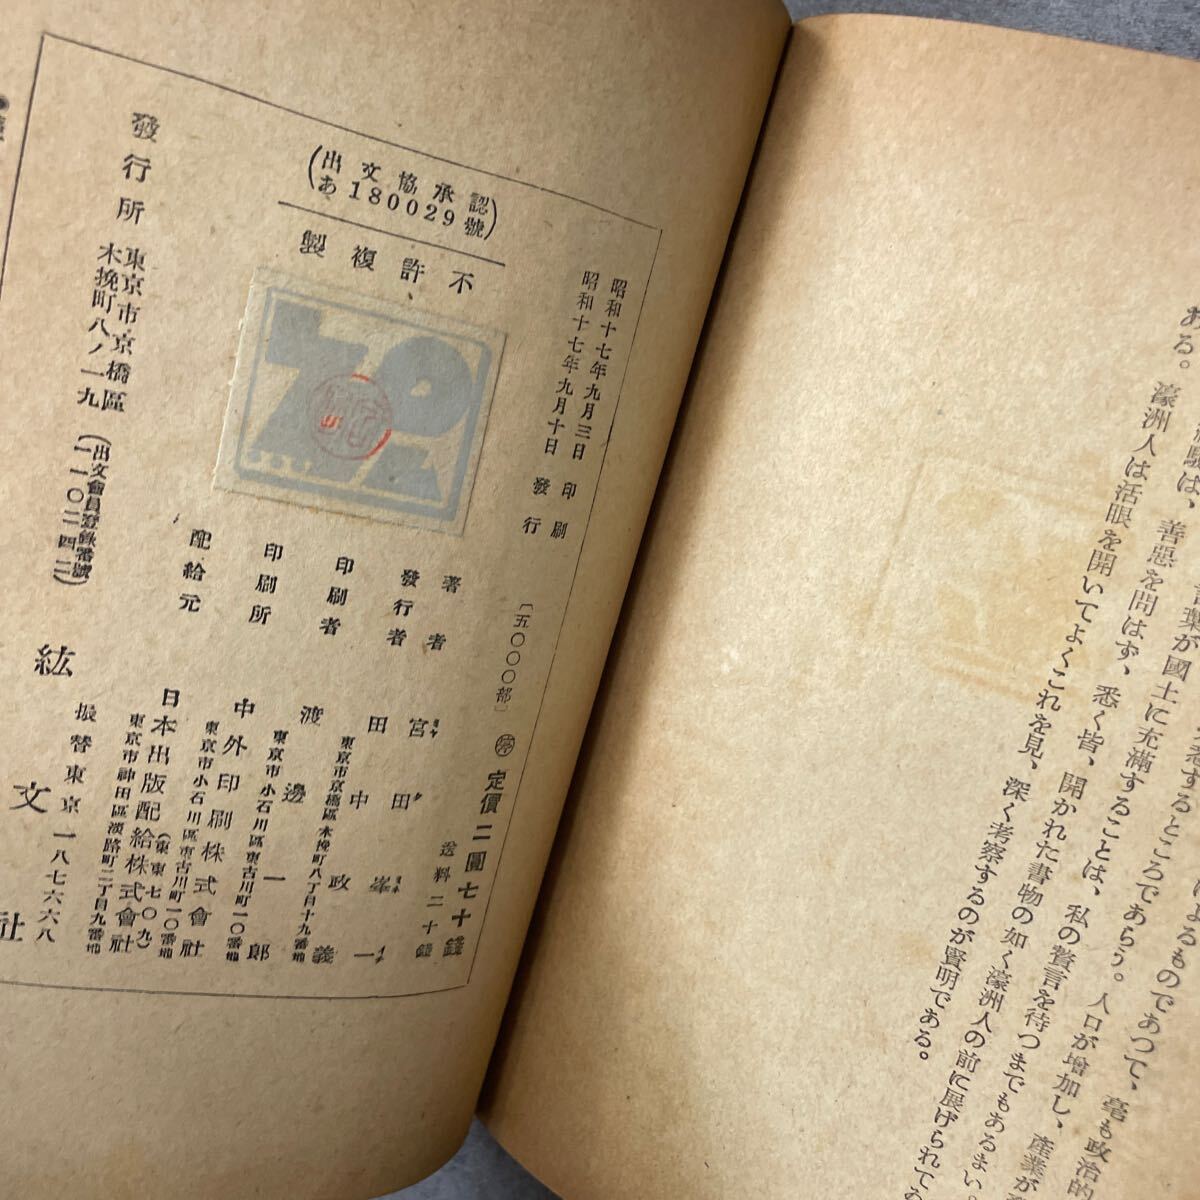 ある。濠洲人は活眼を開いてよくこれを見、深く考察するのが賢明である。
驗は、善惡を問はず、悉く皆、開かれた書物の如く濠洲人の前に展げられてあ
言葉が國土に充滿することは、私の贅言を待つまでもあるまい。
悉するところであらう。人口が增加し、產業が
よるものであつて、毫も政治的
昭和十七年九月三日 印刷
昭和十七年九月十日 發行
〔五〇〇〇部〕
停 定價二圓七十錢
送料二十錢
出文協承認
あ180029號
不許複製
著者 宮田峯一
發行者 田中政義
東京市京橋區木挽町八丁目十九番地
印刷者 渡邊一郎
東京市小石川區東古川町一〇番地
印刷所 中外印刷株式會社
東京市小石川區東古川町一〇番地
(東東七〇九)
配給元 日本出版配給株式會社
東京市神田區淡路町二丁目九番地
發行所 東京市京橋區
木挽町八ノ一九
(出文會員登錄番號
一一〇二四二)
紘文社
振替東京一八七六六八